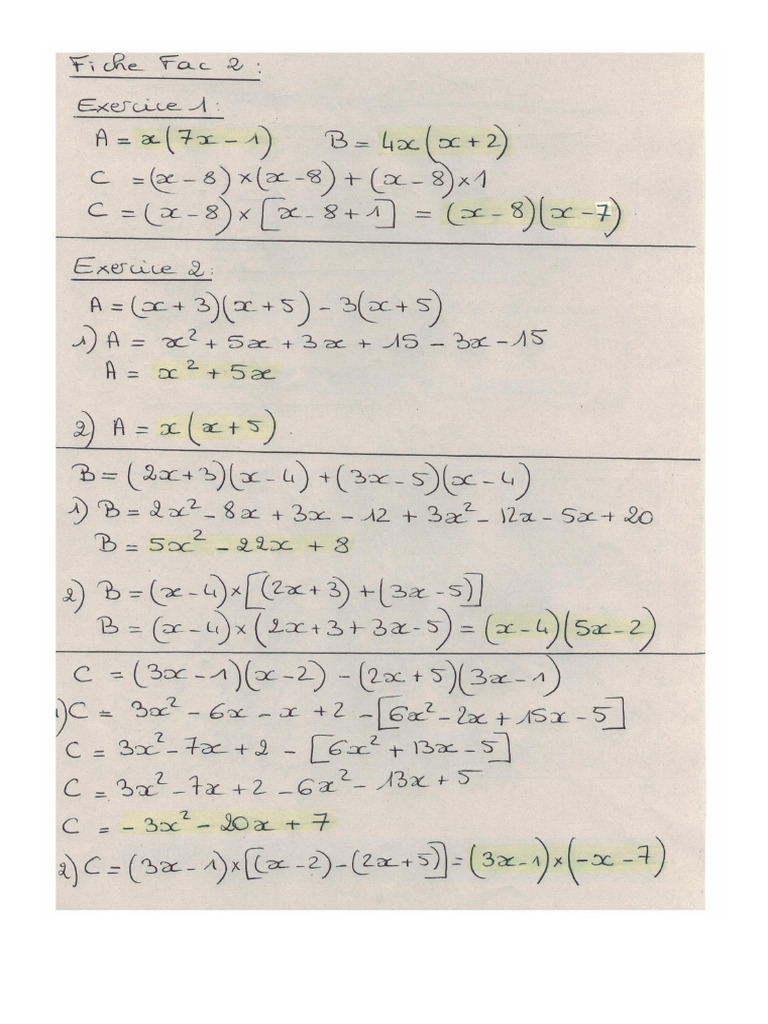 Fiche Fac 2 :
Exercice 1 :
A = x(7x - 1) B = 4x(x + 2)
C = (x - 8) × (x - 8) + (x - 8) × 1
C = (x - 8) × [x - 8 + 1] = (x - 8)(x - 7)
Exercice 2 :
A = (x + 3)(x + 5) - 3(x + 5)
1) A = x² + 5x + 3x + 15 - 3x - 15
A = x² + 5x
2) A = x(x + 5).
B = (2x + 3)(x - 4) + (3x - 5)(x - 4)
1) B = 2x² - 8x + 3x - 12 + 3x² - 12x - 5x + 20
B = 5x² - 22x + 8
2) B = (x - 4) × [(2x + 3) + (3x - 5)]
B = (x - 4) × (2x + 3 + 3x - 5) = (x - 4)(5x - 2)
C = (3x - 1)(x - 2) - (2x + 5)(3x - 1)
1) C = 3x² - 6x - x + 2 - [6x² - 2x + 15x - 5]
C = 3x² - 7x + 2 - [6x² + 13x - 5]
C = 3x² - 7x + 2 - 6x² - 13x + 5
C = - 3x² - 20x + 7
2) C = (3x - 1) × [(x - 2) - (2x + 5)] = (3x - 1) × (-x - 7)